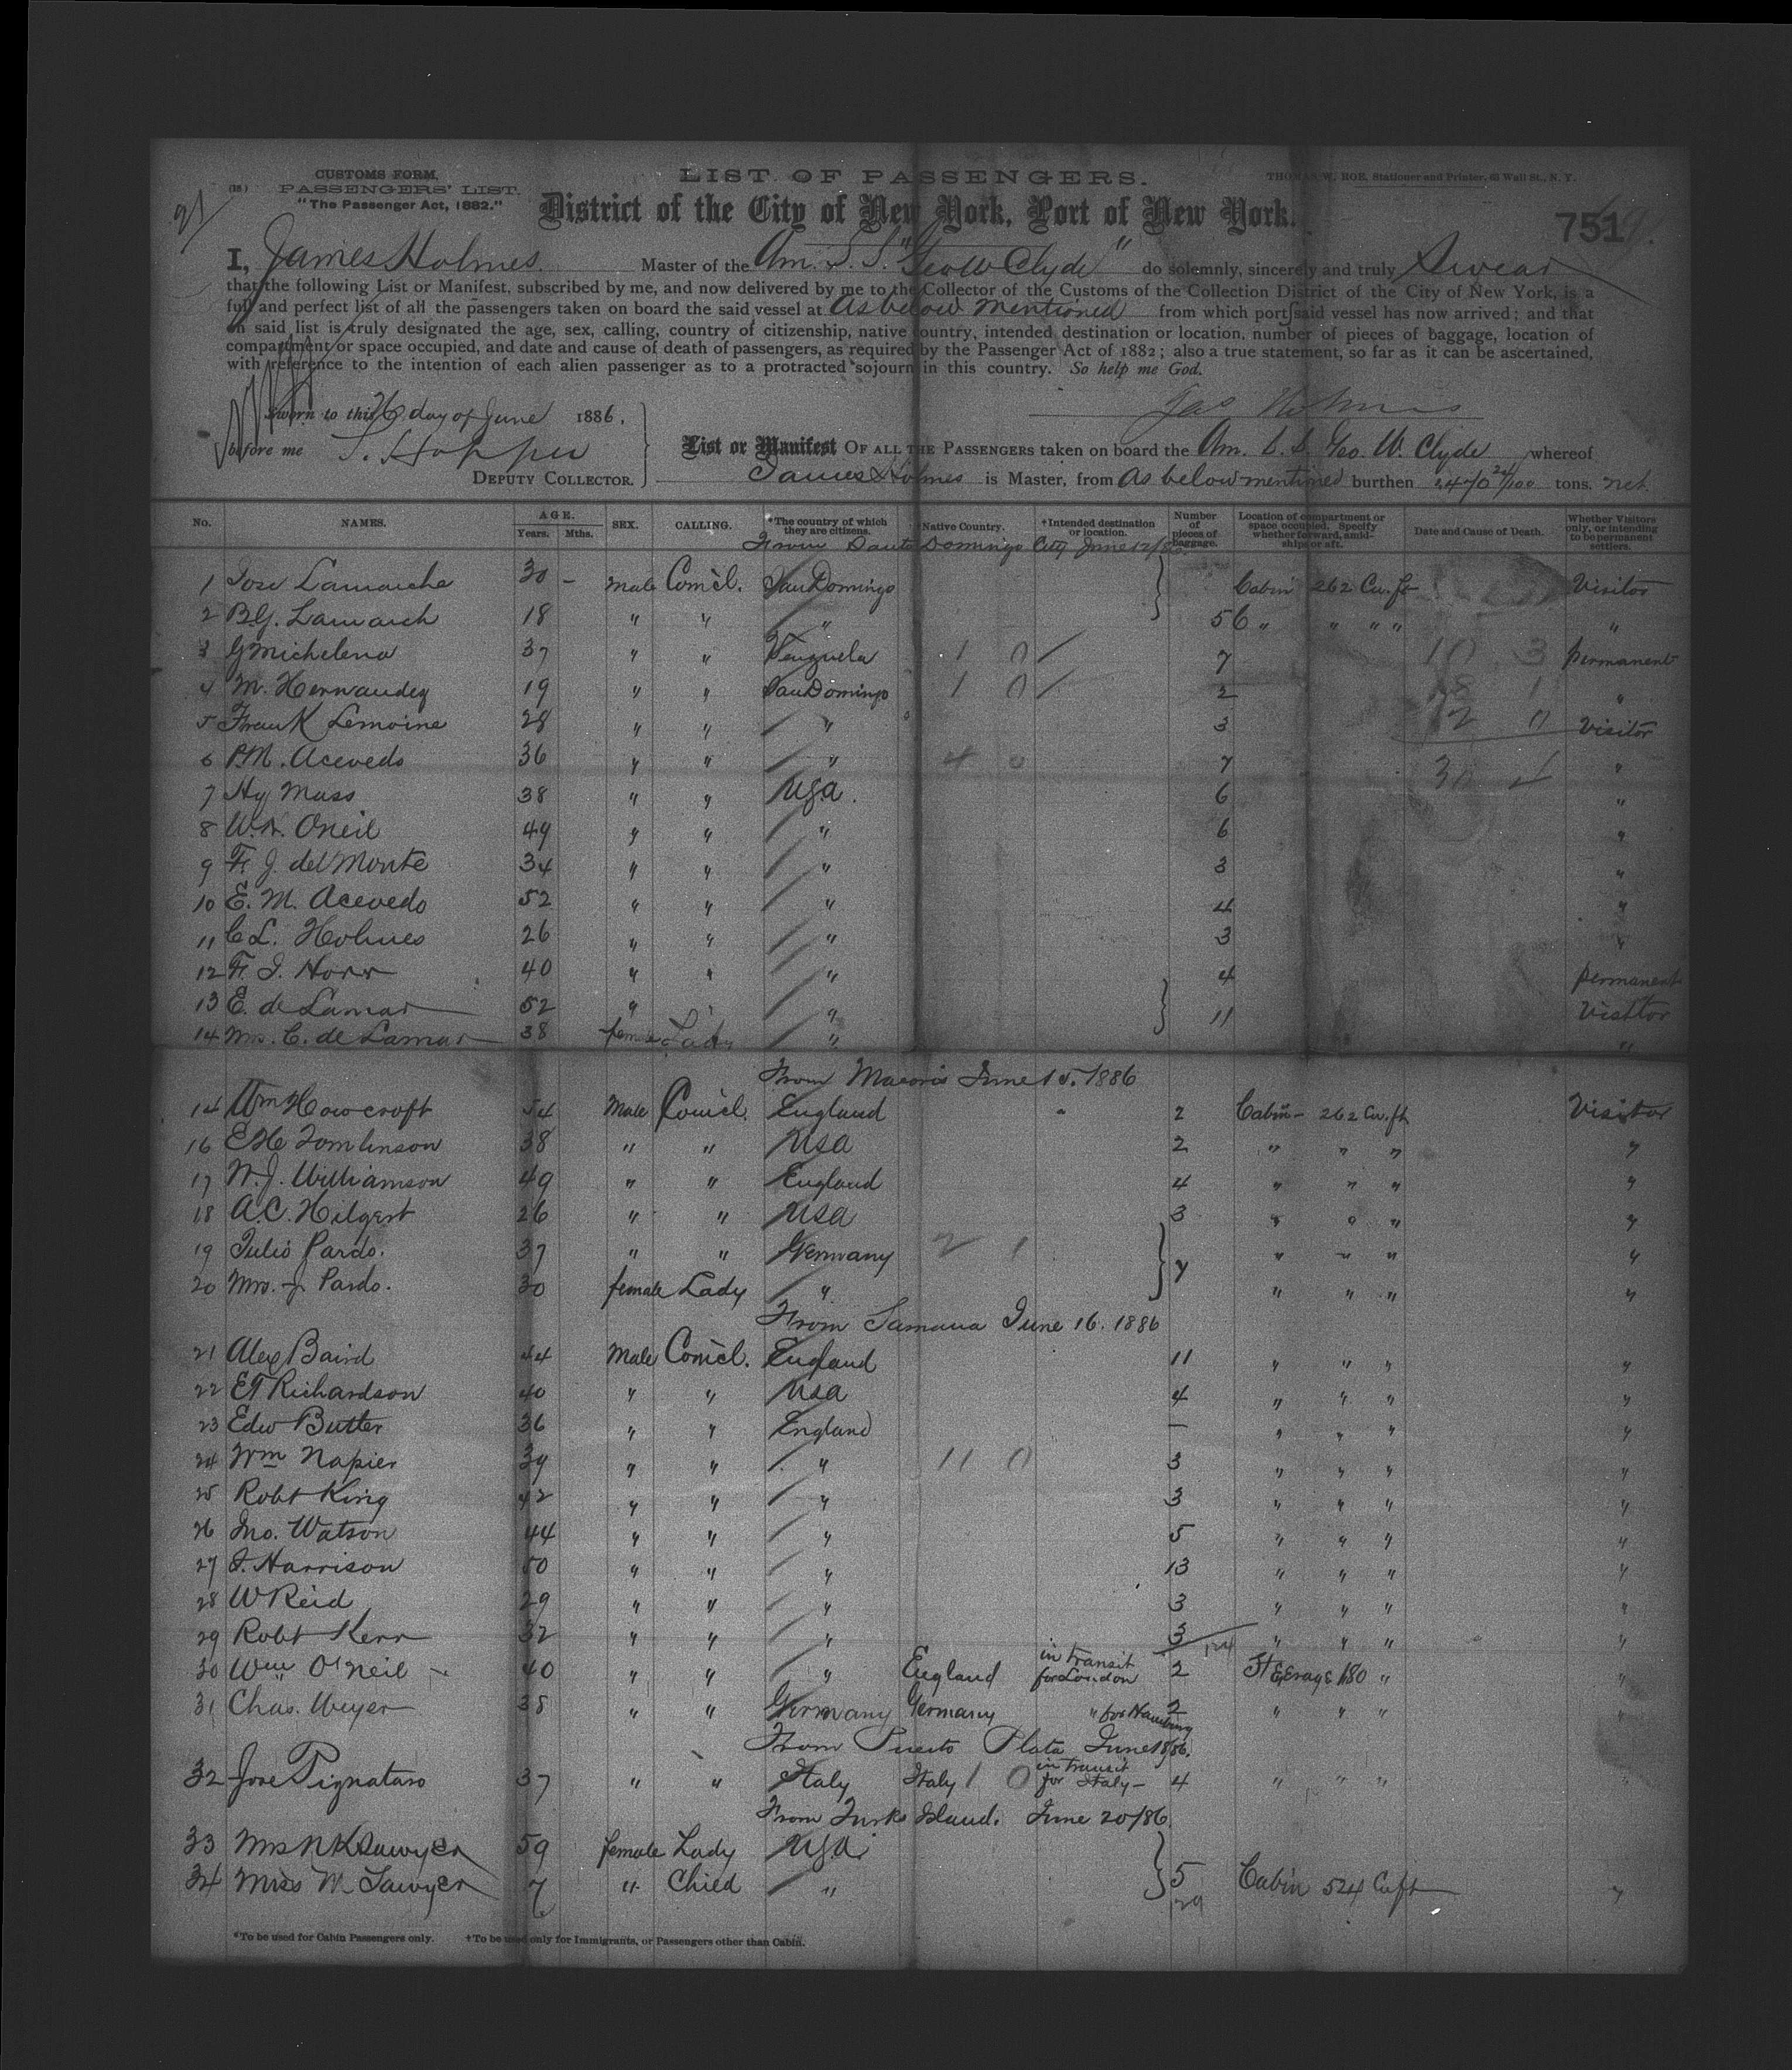 CUSTOMS FORM,
PASSENGERS' LIST.
"The Passenger Act, 1882."
LIST OF PASSENGERS.
THOMAS W. ROE, Stationer and Printer, 63 Wall St., N. Y.
District of the City of New York, Port of New York.
751
I, James Holmes Master of the Am. S. S. "Geo W Clyde" do solemnly, sincerely and truly Swear
that the following List or Manifest, subscribed by me, and now delivered by me to the Collector of the Customs of the Collection District of the City of New York, is a
full and perfect list of all the passengers taken on board the said vessel at As below mentioned from which port said vessel has now arrived; and that
on said list is truly designated the age, sex, calling, country of citizenship, native country, intended destination or location, number of pieces of baggage, location of
compartment or space occupied, and date and cause of death of passengers, as required by the Passenger Act of 1882; also a true statement, so far as it can be ascertained,
with reference to the intention of each alien passenger as to a protracted sojourn in this country. So help me God.
Jas Holmes
Sworn to this 26 day of June 1886.
before me S. Hopper
DEPUTY COLLECTOR.
List or Manifest OF ALL THE PASSENGERS taken on board the Am. S. S. Geo. W. Clyde whereof
James Holmes is Master, from As below mentioned burthen tons. net.
No. NAMES. AGE. Years. Mths. SEX. CALLING. *The country of which they are citizens. Native Country. †Intended destination or location. Number of pieces of baggage. Location of compartment or space occupied. Specify whether forward, amidships or aft. Date and Cause of Death. Whether Visitors only, or intending to be permanent settlers.
From Santo Domingo City June 12/86
1 Jose Lamarche 30 - male Comcl. San Domingo Cabin 262 Cu. ft Visitor
2 B.G. Lamarch 18 " " " 56 " " " " "
3 G Michelena 37 " " Venzuela 1 0 7 10 3 permanent
4 M. Hernandez 19 " " San Domingo 1 0 2 18 1 "
5 Frank Lemoine 28 " " " 3 2 0 Visitor
6 P.M. Acevedo 36 " " " 4 0 7 30 4 "
7 Hy Mass 38 " " USA. 6 "
8 W.N. ONeil 49 " " " 6 "
9 F. J. del Monte 34 " " " 3 "
10 E. M. Acevedo 52 " " " 4 "
11 C L. Holmes 26 " " " 3 "
12 F. J. Horr 40 " " " 4 permanent
13 E. de Lamar 52 " " " 11 Visitor
14 Mrs. C. de Lamar 38 female Lady " "
From Macoris June 15. 1886
14 Wm Howcroft 54 Male Comcl. England 2 Cabin - 262 Cu. ft Visitor
16 E H Tomlinson 38 " " USA 2 " " " "
17 W. J. Williamson 49 " " England 4 " " " "
18 A.C. Hilgert 26 " " USA 3 " " " "
19 Julio Pardo. 37 " " Germany 2 1 " " " "
20 Mrs. J. Pardo. 30 female Lady " 7 " " " "
From Samana June 16. 1886
21 Alex Baird 44 Male Comcl. England 11 " " " "
22 E T Richardson 40 " " USA 4 " " " "
23 Edw Butler 36 " " England — " " " "
24 Wm Napier 39 " " " 11 0 3 " " " "
25 Robt King 42 " " " 3 " " " "
26 Jno. Watson 44 " " " 5 " " " "
27 J. Harrison 50 " " " 13 " " " "
28 W Reid 29 " " " 3 " " " "
29 Robt Kerr 32 " " " 3 124 " " " "
30 Wm O'Neil 40 " " " England in transit for London 2 Steerage 180 " "
31 Chas. Weyer 38 " " Germany Germany " for Hamburg 2 " " " "
From Puerto Plata June 18/86.
32 Jose Pignataro 37 " " Italy Italy 1 0 in transit for Italy - 4 " " " "
From Turks Island. June 20/86.
33 Mrs N K Sawyer 59 female Lady USA.
34 Miss M Sawyer 7 " Child " 5 Cabin 524 Cu ft "
129
*To be used for Cabin Passengers only. †To be used only for Immigrants, or Passengers other than Cabin.